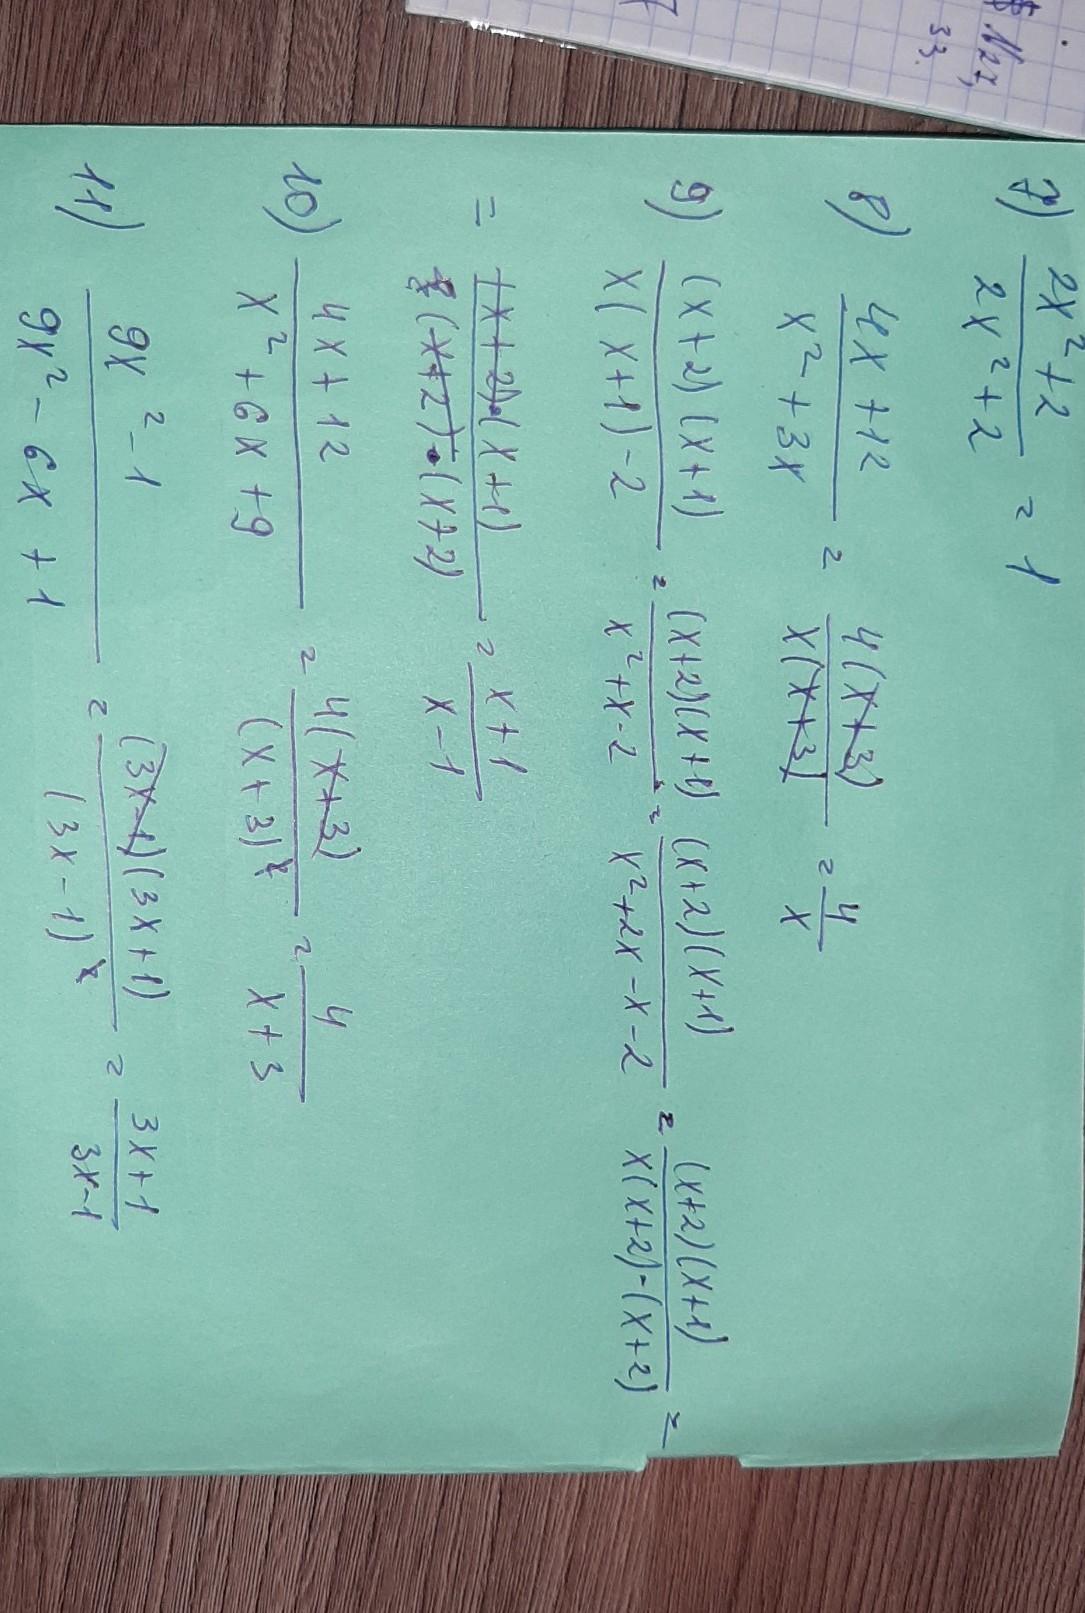 №22,
33.
7) (2x²+2)/(2x²+2) = 1
8) (4x+12)/(x²+3x) = 4(x+3)/x(x+3) = 4/x
9) (x+2)(x+1)/x(x+1)-2 = (x+2)(x+1)/x²+x-2 = (x+2)(x+1)/x²+2x-x-2 = (x+2)(x+1)/x(x+2)-(x+2) =
= (x+2)·(x+1)/(x+2)·(x+2) = x+1/x-1
10) 4x+12/x²+6x+9 = 4(x+3)/(x+3)² = 4/x+3
11) 9x²-1/9x²-6x+1 = (3x-1)(3x+1)/(3x-1)² = 3x+1/3x-1